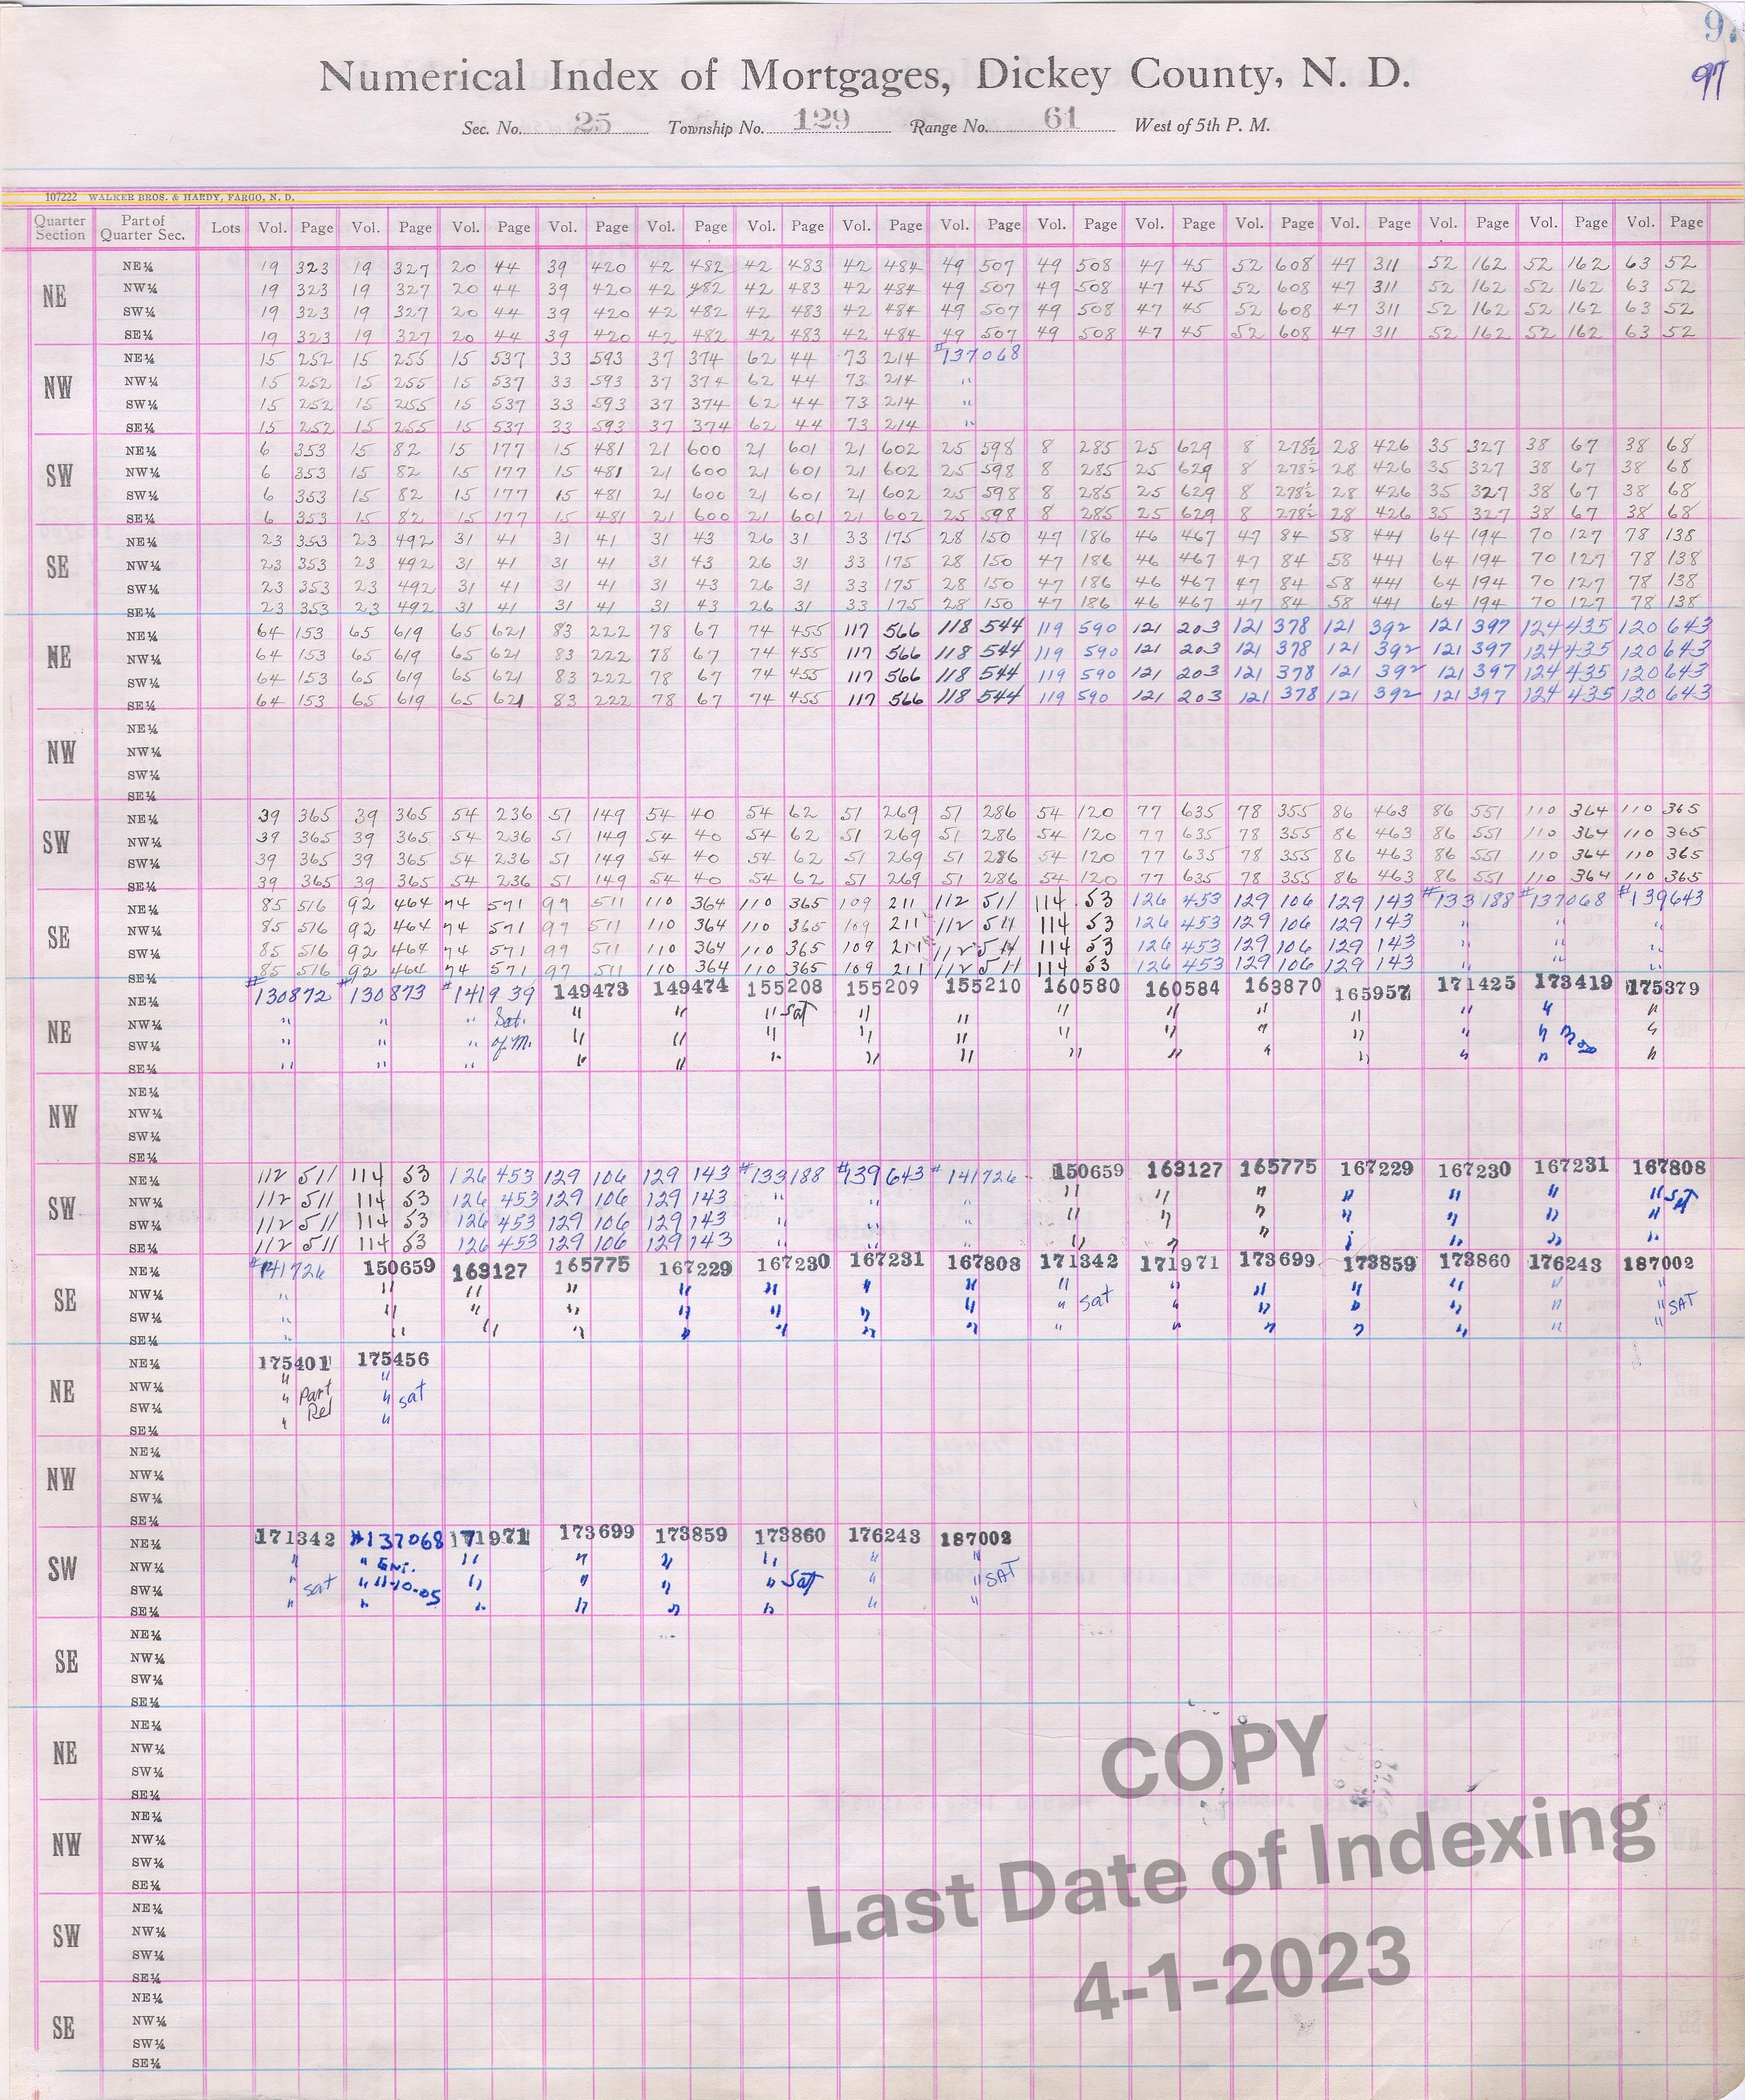 97
Numerical Index of Mortgages, Dickey County, N. D.
97
Sec. No. 25 Township No. 129 Range No. 61 West of 5th P. M.
107222 WALKER BROS. & HARDY, FARGO, N. D.
Quarter Section Part of Quarter Sec. Lots Vol. Page Vol. Page Vol. Page Vol. Page Vol. Page Vol. Page Vol. Page Vol. Page Vol. Page Vol. Page Vol. Page Vol. Page Vol. Page Vol. Page Vol. Page
NE
NE¼ 19 323 19 327 20 44 39 420 42 482 42 483 42 484 49 507 49 508 47 45 52 608 47 311 52 162 52 162 63 52
NW¼ 19 323 19 327 20 44 39 420 42 482 42 483 42 484 49 507 49 508 47 45 52 608 47 311 52 162 52 162 63 52
SW¼ 19 323 19 327 20 44 39 420 42 482 42 483 42 484 49 507 49 508 47 45 52 608 47 311 52 162 52 162 63 52
SE¼ 19 323 19 327 20 44 39 420 42 482 42 483 42 484 49 507 49 508 47 45 52 608 47 311 52 162 52 162 63 52
NW
NE¼ 15 252 15 255 15 537 33 593 37 374 62 44 73 214 #137068
NW¼ 15 252 15 255 15 537 33 593 37 374 62 44 73 214 "
SW¼ 15 252 15 255 15 537 33 593 37 374 62 44 73 214 "
SE¼ 15 252 15 255 15 537 33 593 37 374 62 44 73 214 "
SW
NE¼ 6 353 15 82 15 177 15 481 21 600 21 601 21 602 25 598 8 285 25 629 8 278½ 28 426 35 327 38 67 38 68
NW¼ 6 353 15 82 15 177 15 481 21 600 21 601 21 602 25 598 8 285 25 629 8 278½ 28 426 35 327 38 67 38 68
SW¼ 6 353 15 82 15 177 15 481 21 600 21 601 21 602 25 598 8 285 25 629 8 278½ 28 426 35 327 38 67 38 68
SE¼ 6 353 15 82 15 177 15 481 21 600 21 601 21 602 25 598 8 285 25 629 8 278½ 28 426 35 327 38 67 38 68
SE
NE¼ 23 353 23 492 31 41 31 41 31 43 26 31 33 175 28 150 47 186 46 467 47 84 58 441 64 194 70 127 78 138
NW¼ 23 353 23 492 31 41 31 41 31 43 26 31 33 175 28 150 47 186 46 467 47 84 58 441 64 194 70 127 78 138
SW¼ 23 353 23 492 31 41 31 41 31 43 26 31 33 175 28 150 47 186 46 467 47 84 58 441 64 194 70 127 78 138
SE¼ 23 353 23 492 31 41 31 41 31 43 26 31 33 175 28 150 47 186 46 467 47 84 58 441 64 194 70 127 78 138
NE
NE¼ 64 153 65 619 65 621 83 222 78 67 74 455 117 566 118 544 119 590 121 203 121 378 121 392 121 397 124 435 120 643
NW¼ 64 153 65 619 65 621 83 222 78 67 74 455 117 566 118 544 119 590 121 203 121 378 121 392 121 397 124 435 120 643
SW¼ 64 153 65 619 65 621 83 222 78 67 74 455 117 566 118 544 119 590 121 203 121 378 121 392 121 397 124 435 120 643
SE¼ 64 153 65 619 65 621 83 222 78 67 74 455 117 566 118 544 119 590 121 203 121 378 121 392 121 397 124 435 120 643
NW
NE¼
NW¼
SW¼
SE¼
SW
NE¼ 39 365 39 365 54 236 51 149 54 40 54 62 51 269 51 286 54 120 77 635 78 355 86 463 86 551 110 364 110 365
NW¼ 39 365 39 365 54 236 51 149 54 40 54 62 51 269 51 286 54 120 77 635 78 355 86 463 86 551 110 364 110 365
SW¼ 39 365 39 365 54 236 51 149 54 40 54 62 51 269 51 286 54 120 77 635 78 355 86 463 86 551 110 364 110 365
SE¼ 39 365 39 365 54 236 51 149 54 40 54 62 51 269 51 286 54 120 77 635 78 355 86 463 86 551 110 364 110 365
SE
NE¼ 85 516 92 464 74 571 97 511 110 364 110 365 109 211 112 511 114 53 126 453 129 106 129 143 #133188 #137068 #139643
NW¼ 85 516 92 464 74 571 97 511 110 364 110 365 109 211 112 511 114 53 126 453 129 106 129 143 " " "
SW¼ 85 516 92 464 74 571 97 511 110 364 110 365 109 211 112 511 114 53 126 453 129 106 129 143 " " "
SE¼ 85 516 92 464 74 571 97 511 110 364 110 365 109 211 112 511 114 53 126 453 129 106 129 143 " " "
NE
NE¼ #130872 #130873 #141939 149473 149474 155208 155209 155210 160580 160584 163870 165957 171425 173419 175379
NW¼ " " " Sat. " " " Sat " " " " " " " " "
SW¼ " " " of M. " " " " " " " " " " " "
SE¼ " " " " " " " " " " " " " " "
NW
NE¼
NW¼
SW¼
SE¼
SW
NE¼ 112 511 114 53 126 453 129 106 129 143 #133188 #139643 #141726 150659 163127 165775 167229 167230 167231 167808
NW¼ 112 511 114 53 126 453 129 106 129 143 " " " " " " " " " " Sat
SW¼ 112 511 114 53 126 453 129 106 129 143 " " " " " " " " " "
SE¼ 112 511 114 53 126 453 129 106 129 143 " " " " " " " " " "
SE
NE¼ #141726 150659 163127 165775 167229 167230 167231 167808 171342 171971 173699 173859 173860 176243 187002
NW¼ " " " " " " " " " " " " " " "
SW¼ " " " " " " " " " Sat " " " " " " SAT
SE¼ " " " " " " " " " " " " " " "
NE
NE¼ 175401 175456
NW¼ " "
SW¼ " Part " Sat
SE¼ " Rel "
NW
NE¼
NW¼
SW¼
SE¼
SW
NE¼ 171342 #137068 171971 173699 173859 173860 176243 187002
NW¼ " " " " " " " "
SW¼ " Sat " 11-10-05 " " " " Sat " " SAT
SE¼ " " " " " " " "
SE
NE¼
NW¼
SW¼
SE¼
NE
NE¼
NW¼
SW¼
SE¼
NW
NE¼
NW¼
SW¼
SE¼
SW
NE¼
NW¼
SW¼
SE¼
SE
NE¼
NW¼
SW¼
SE¼
COPY
Last Date of Indexing
4-1-2023